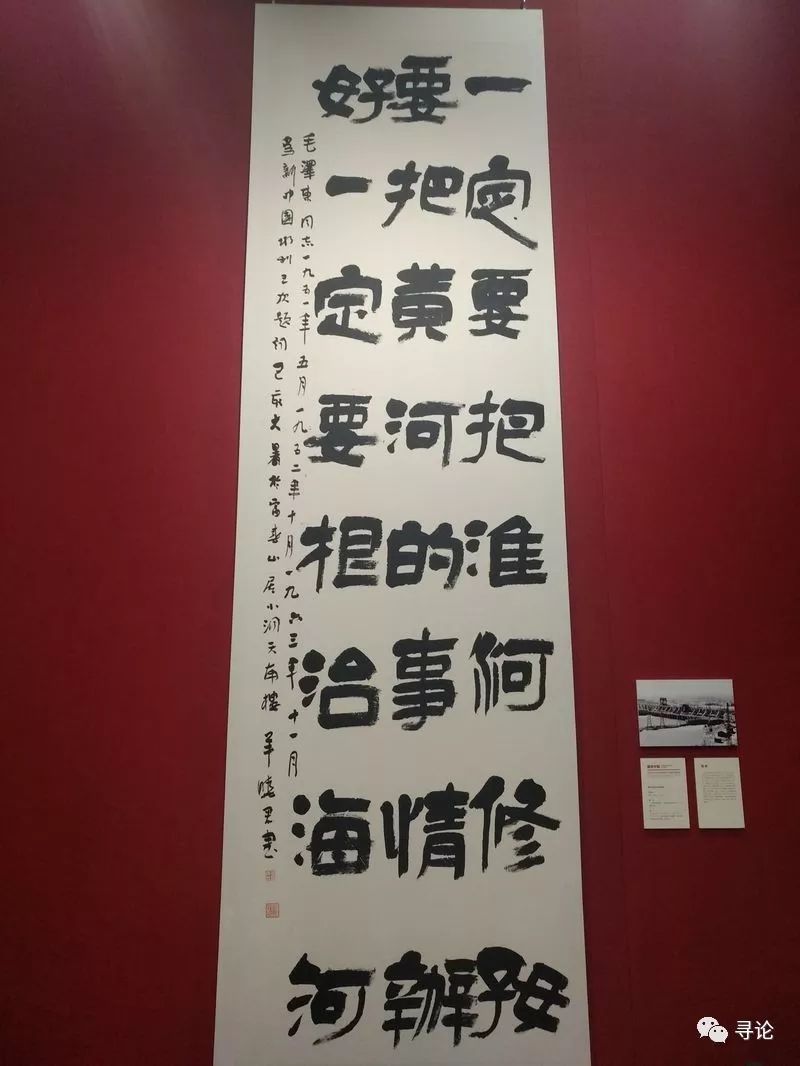 一定要把淮河修好
要把黃河的事情辦
好一定要根治海河
毛澤東同志一九五一年五月一九五二年十月一九六三年十一月
為新中國水利三次題詞己亥大暑於富春山居小洞天南樓羊曉君書
寻论